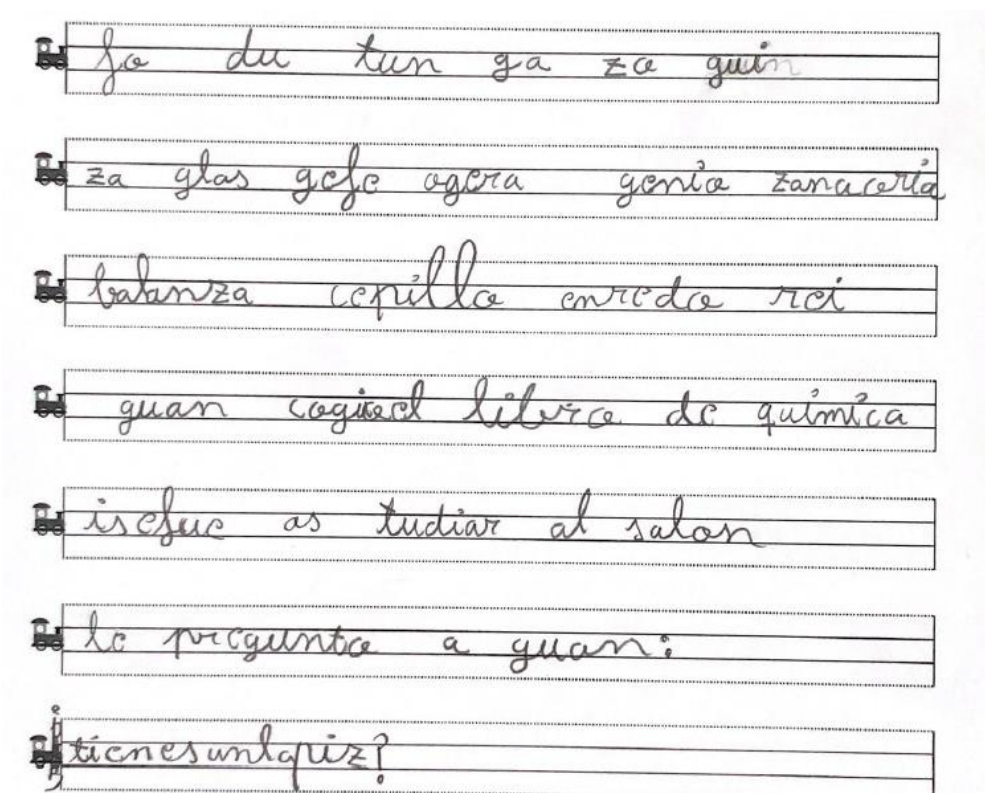 fo du tun ga zo guin
za glas gefe ogera genio zanaoria
balanza cepillo enredo rei
guan cogioel libro de química
isefue as tudiar al salon
le pregunto a guan:
¿tienesunlapiz?